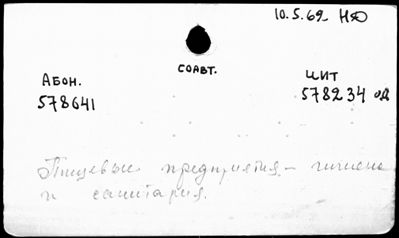 10.5.62 НЮ
СОАВТ.
АБОН. ЦИТ
578641 578234 ОД
Пищевые предприятия – гигиена
и санитария.